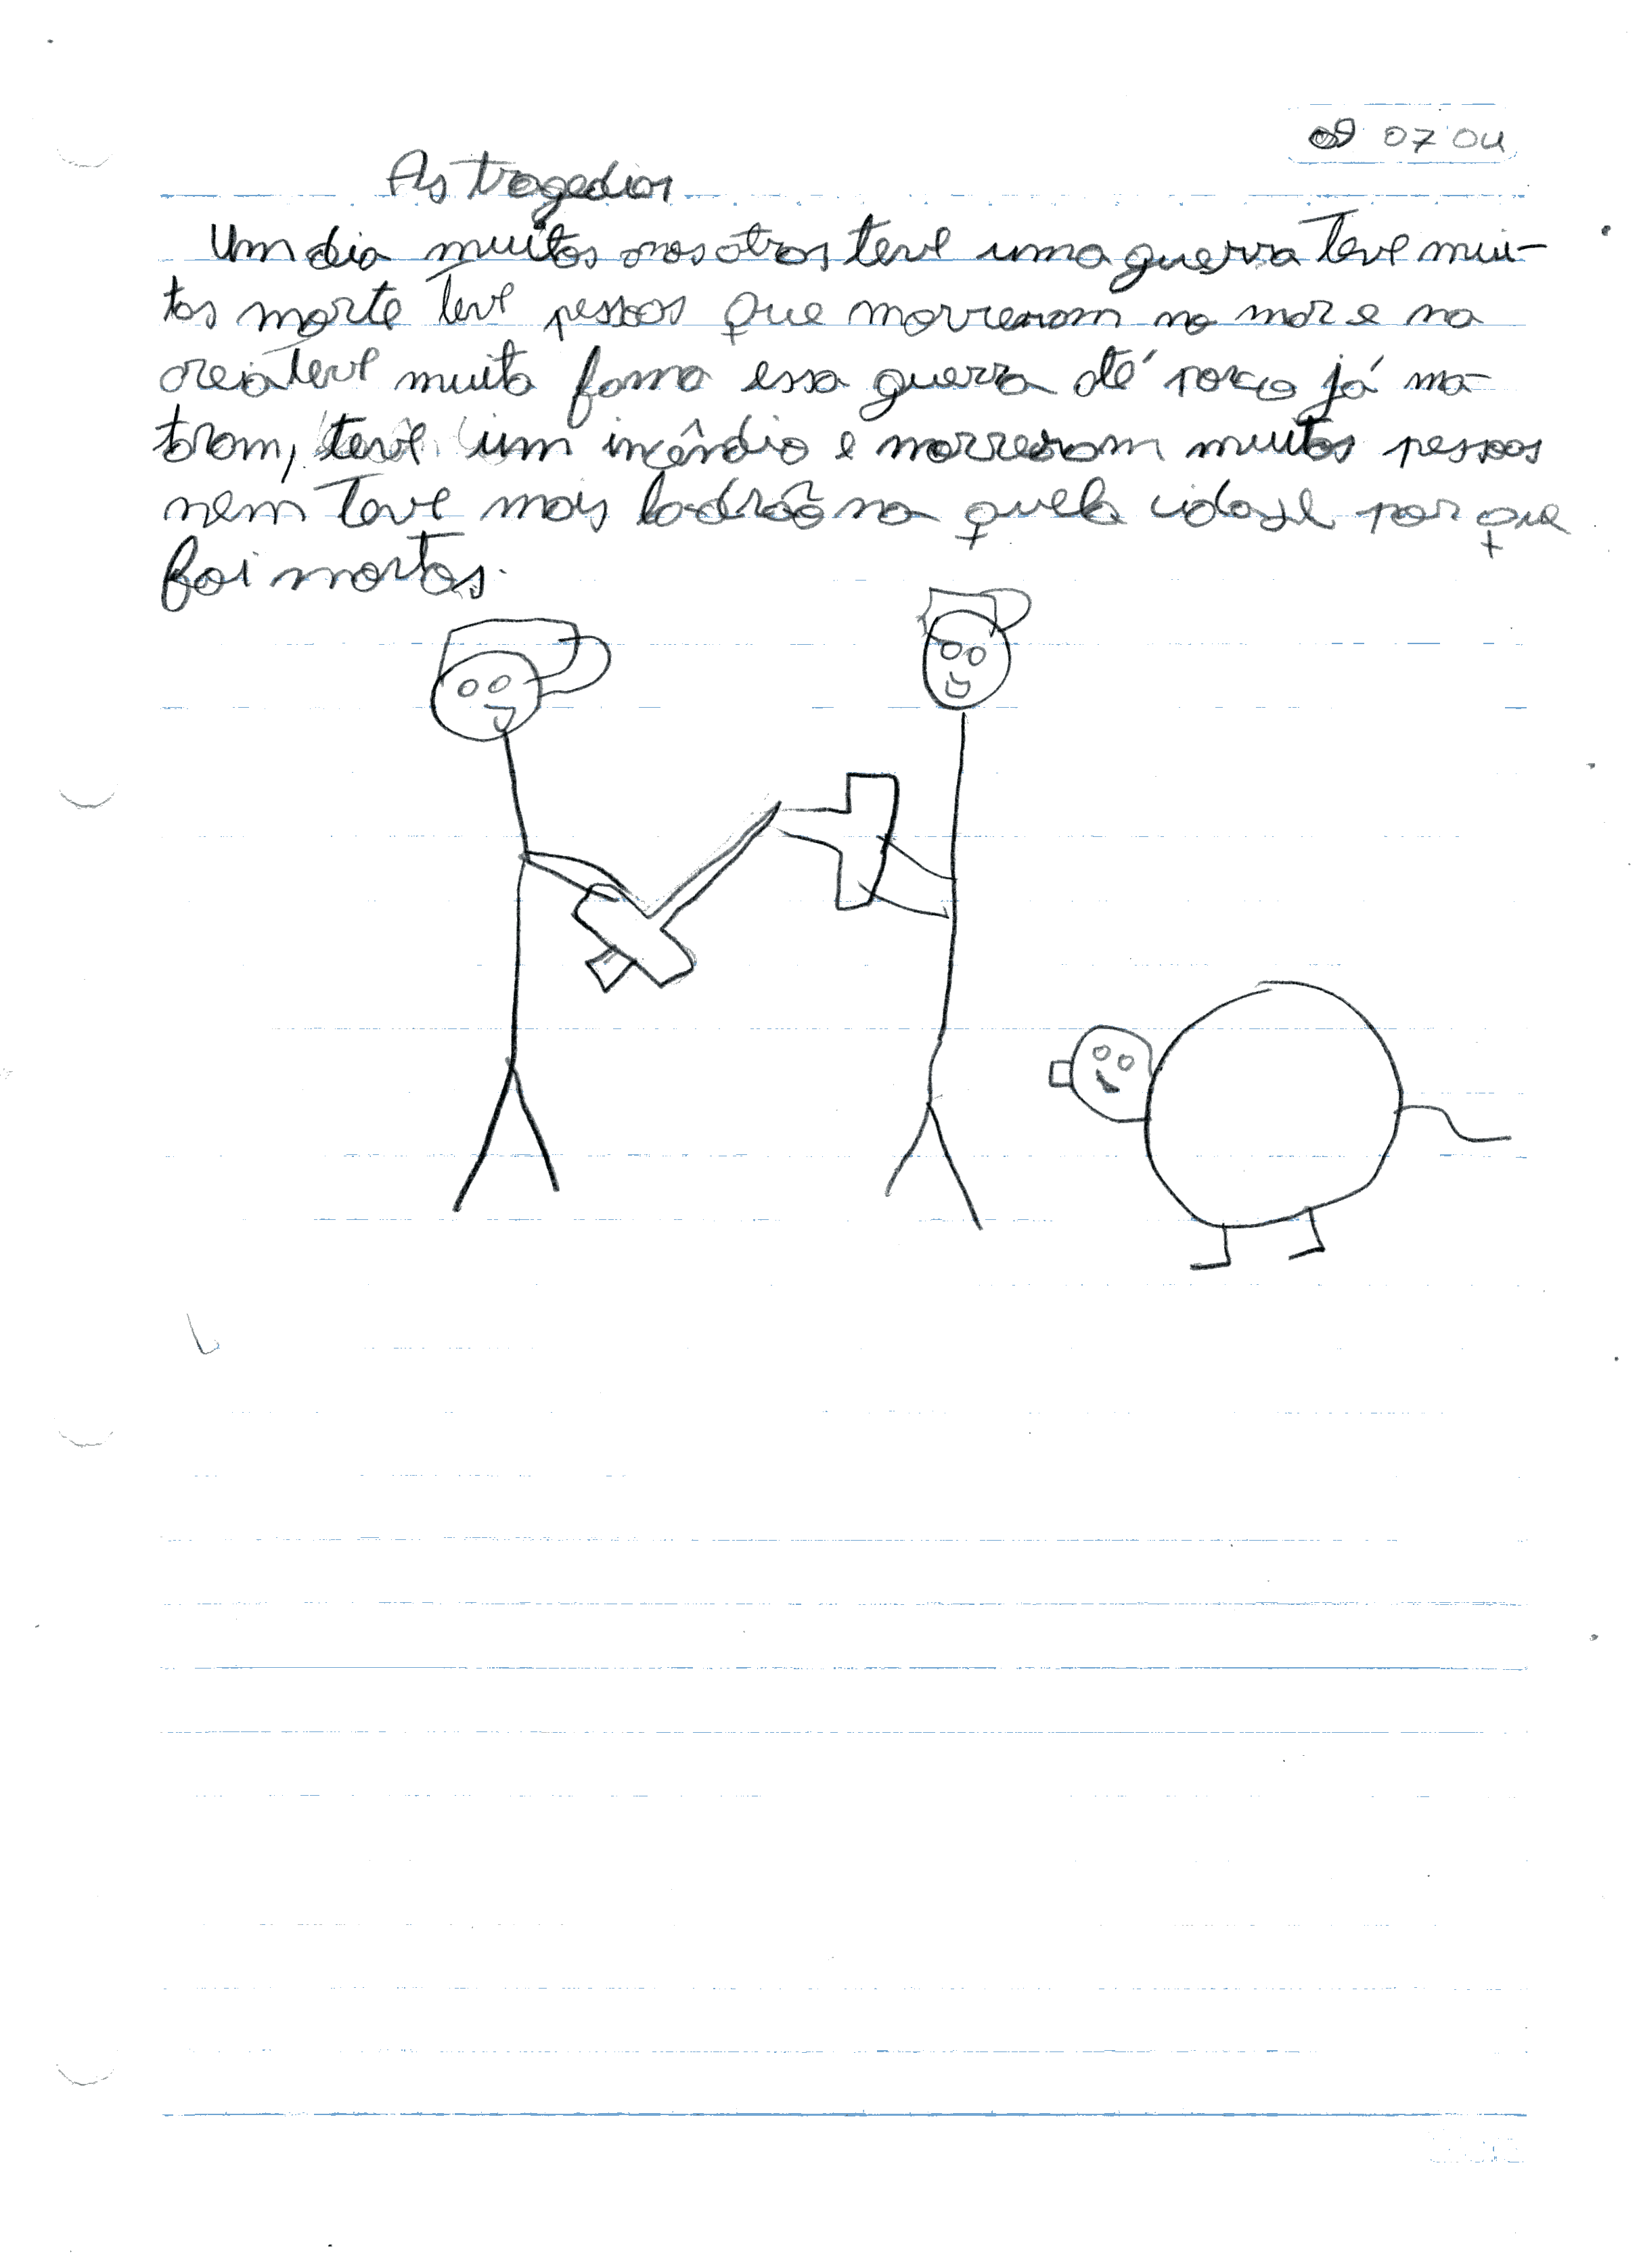 09 07 04
As tragedias
Um dia muitos anos atras teve uma guerra teve mui-
tas morte teve pessoas que morreram no mar e na
areia teve muita fama essa guerra até porco já ma-
taram, teve um incêndio e morreram muitas pessoas
nem teve mais ladrão na quela cidade por que
foi mortos.